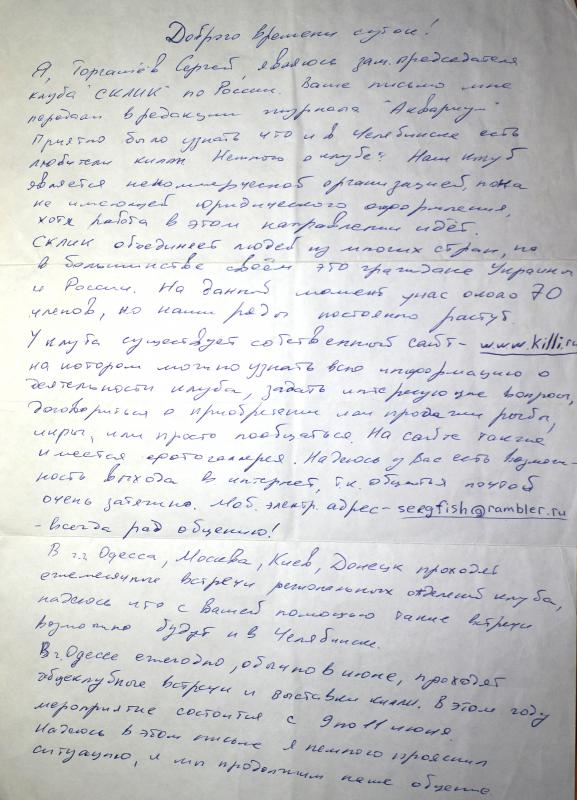 Доброго времени суток!
Я, Торгашёв Сергей, являюсь зам. председателя
клуба "СКЛИК" по России. Ваше письмо мне
передали в редакции журнала "Аквариум"
Приятно было узнать что и в Челябинске есть
любители килли. Немного о клубе: Наш клуб
является некоммерческой организацией, пока
не имеющей юридического оформления,
хотя работа в этом направлении идёт.
СКЛИК объединяет людей из многих стран, но
в большинстве своём это граждане Украины
и России. На данный момент у нас около 70
членов, но наши ряды постоянно растут.
У клуба существует собственный сайт - www.killi.ru
на котором можно узнать всю информацию о
деятельности клуба, задать интересующие вопросы,
договориться о приобретении или продаже рыбы,
икры, или просто пообщаться. На сайте также
имеется фотогалерея. Надеюсь у Вас есть возмож-
ность выхода в интернет, т.к. общаться почтой
очень затяжно. Мой электр. адрес - seegfish@rambler.ru
- всегда рад общению!
В г.г. Одесса, Москва, Киев, Донецк проходят
ежемесячные встречи региональных отделений клуба,
надеюсь что с вашей помощью такие встречи
возможно будут и в Челябинске.
В г. Одессе ежегодно, обычно в июне, проходят
общеклубные встречи и выставки килли. В этом году
мероприятие состоится с 9 по 11 июня.
Надеюсь в этом письме я немного прояснил
ситуацию, и мы продолжим наше общение.